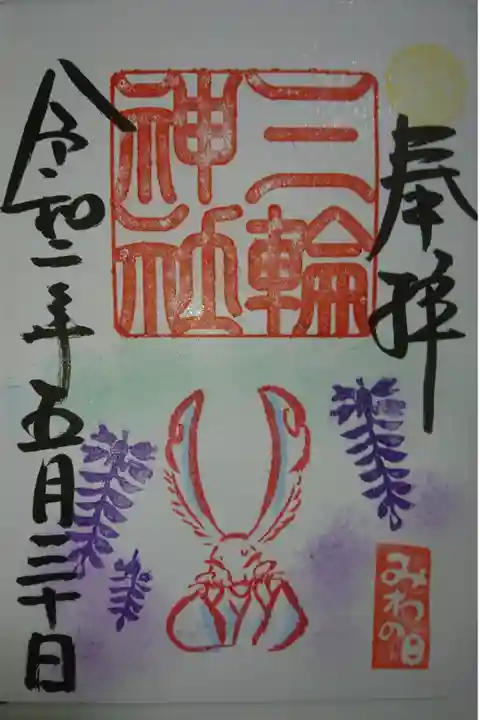 奉拝
三輪
神社
みわの日
令和二年五月三十日